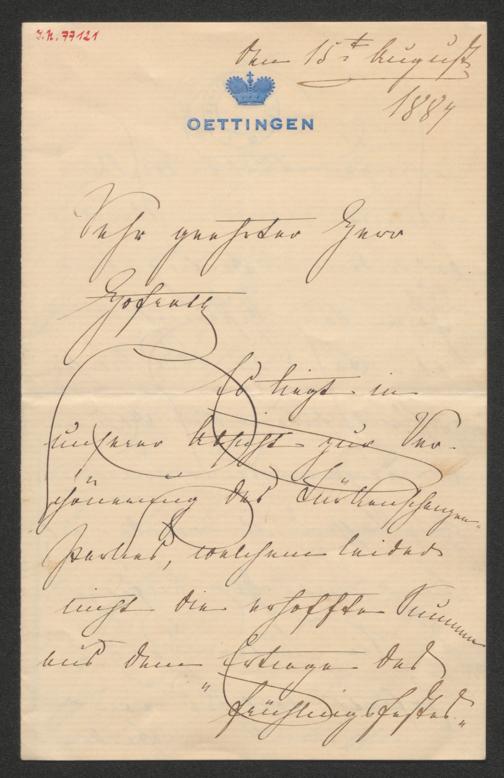 I.N. 77121
den 15t August
1887
OETTINGEN
Sehr geehrter Herr
Hofrath
Es liegt in
unserer Absicht zur Ver-
schönerung des Türkenschanzen-
parkes, welchem leider
nicht die erhoffte Summe
aus dem Ertrage des
"Frühlingsfestes"